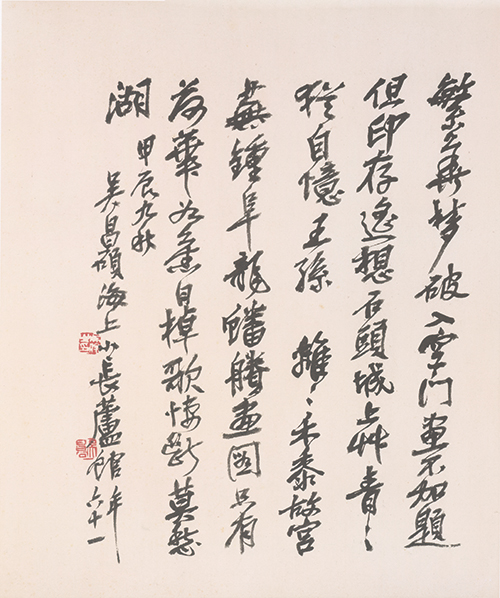 繁華夢破入空門畫不加題
但印存遙想石頭城上艸青〻
猶自憶王孫 離〻禾黍故宮
蕪鍾阜龍蟠賸畫圖只有
荷華如舊日棹歌悽斷莫愁
湖 甲辰九秋
吳昌碩海上小長蘆館年
六十一